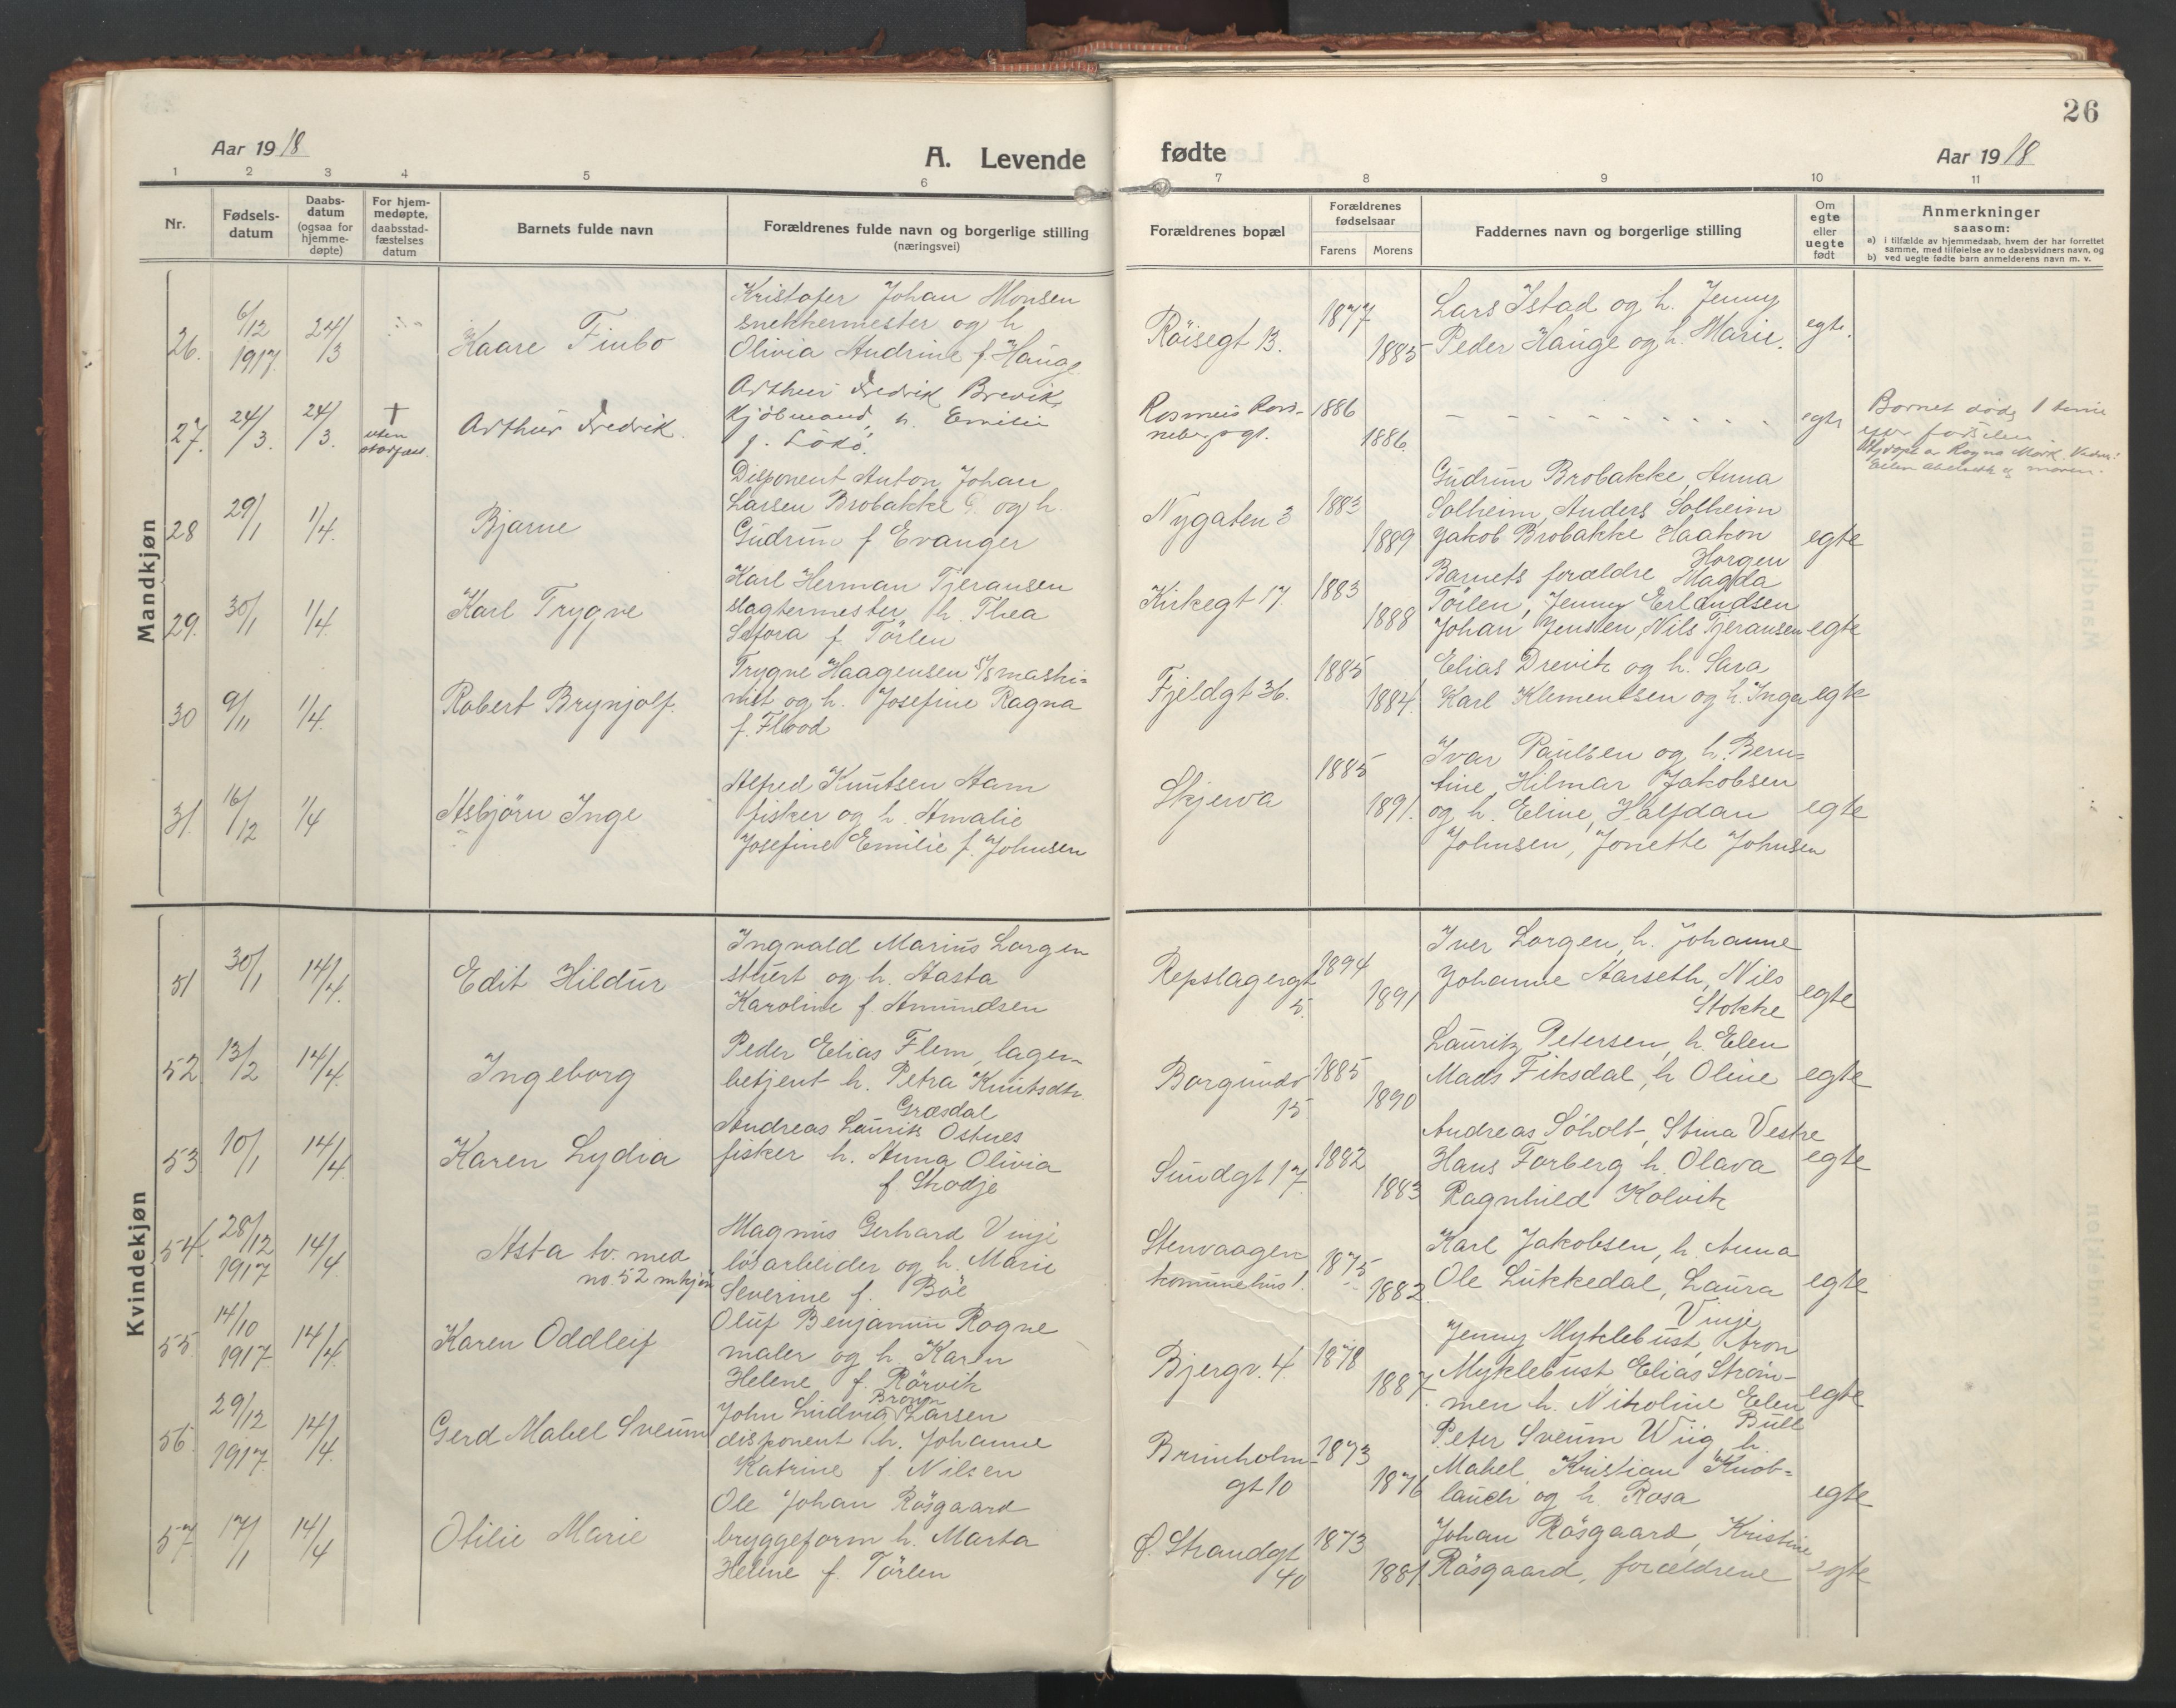 26
Aar 1918
A. Levende fødte
Aar 1918
1 2 3 4 5 6 7 8 9 10 11
Nr.
Fødsels-
datum
Daabs-
datum
(ogsaa for
hjemme-
døpte)
For hjem-
medøpte,
daabsstad-
fæstelses
datum
Barnets fulde navn
Forældrenes fulde navn og borgerlige stilling
(næringsvei)
Forældrenes bopæl
Forældrenes
fødselsaar
Farens Morens
Faddernes navn og borgerlige stilling
Om
egte
eller
uegte
født
Anmerkninger
saasom:
a) i tilfælde av hjemmedaab, hvem der har forrettet
samme, med tilføielse av to daabsvidners navn, og
b) ved uegte fødte barn anmelderens navn m. v.
Mandkjøn
26.
6/12
1917.
24/3
Kaare Finbo
Kristofer Johan Monsen
snekkermester og h
Olivia Andrine f. Hauge
Röisegt 13.
1877
1885
Lars Istad og h. Jenny
Peder Hauge og h. Marie.
egte.
27.
24/3.
24/3.
†
uten
Arthur Fredrik.
Arthur Fredrik Brevik,
Kjöbmand, h. Emilie
f.
Rasmus
1886
1886.
egte
Barnet döde 1 time
efter födselen
28
29/1
1/4.
Bjarne
Disponent Anton Johan
Larsen Brobakke og h.
Gudrun f Evanger
Nygaten 3
1883
1889
Gudrun Brobakke, Anna
Solheim, Anders Solheim
Jakob Brobakke Haakon
Horgen
egte
29.
30/1
1/4.
Karl Trygve
Karl Herman Tjeransen
slagtermester, h. Thea
Sefora f. Törlen
Kirkegt 17.
1883
1888
Barnets forældre, Magda
Törlen, Jenny Erlandsen
Johan Jensen, Nils Tjeransen
egte
30
9/11
1/4.
Robert Brynjolf.
Trygve Haagensen s/s maski-
nist og h. Josefine Ragna
f. Flood
Fjeldgt 36.
1885
1884.
Elias Drevik og h. Sara
Karl Klementsen og h. Inga
egte
31.
16/12
1/4
Asbjörn Inge
Alfred Knutsen Aam
fisker og h. Amalie
Josefine Emilie f. Johnsen
Skjerva
1885
1891.
Ivar Paulsen og h. Bern-
tine, Hilmar Jakobsen
og h. Eline, Halfdan
Johnsen, Jonette Johnsen
egte
Kvindekjøn
51
30/1
14/4.
Edit Hildur
Ingvald Marius Lorgen
stuert og h. Aasta
Karoline f. Amundsen
Repslagergt
5.
1894
1891
Iver Lorgen, h. Johanne
Johanne Aarseth, Nils
Stokke
egte
52.
13/2
14/4.
Ingeborg
Peder Elias Flem, lager-
betjent h. Petra Knutsdtr.
Græsdal
Borgundv
15
1885
1890
Lauritz Petersen, h. Elen
Mads Fiksdal, h Oline
egte
53
10/1
14/4.
Karen Lydia
Andreas Laurits Ostnes
fisker h. Anna Olivia
f Skodje
Sundgt 17.
1882
1883
Andreas Söholt, Stina Vestre
Hans Farberg h. Olava
Ragnhild Kolvik
egte
54.
28/12
1917
14/4.
Asta tv. med
no. 52 mkjön
Magnus Gerhard Vinje
lösarbeider og h. Marie
Severine f. Böe
Stenvaagen
komunehus 1.
1875
1882.
Karl Jakobsen, h. Anna
Ole Lukkedal, Laura
Vinje
egte
55.
14/10
1917.
14/4.
Karen Oddleif
Oluf Benjamin Rogne
maler og h. Karen
Helene f. Rörvik
Bjergv. 4.
1878
1887.
Jenny Myklebust, Aron
Myklebust Elias Strøm-
men h. Nikoline Elen
Bull
egte
56.
29/12
1917.
14/4.
Gerd Mabel Sveum
Brown
John Ludvig Larsen
disponent h. Johanne
Katrine f. Nilsen
Brunholm-
gt 10
1873
1876
Peter Sveum Wiig, h.
Mabel, Kristian Knob-
lauch og h. Rosa
egte
57.
17/1
14/4
Otilie Marie
Ole Johan Rösgaard
bryggeform h. Marta
Helene f. Törlen
Ø. Strandgt
40
1873
1881.
Johan Rösgaard, Kristine
Rösgaard, forældrene
egte